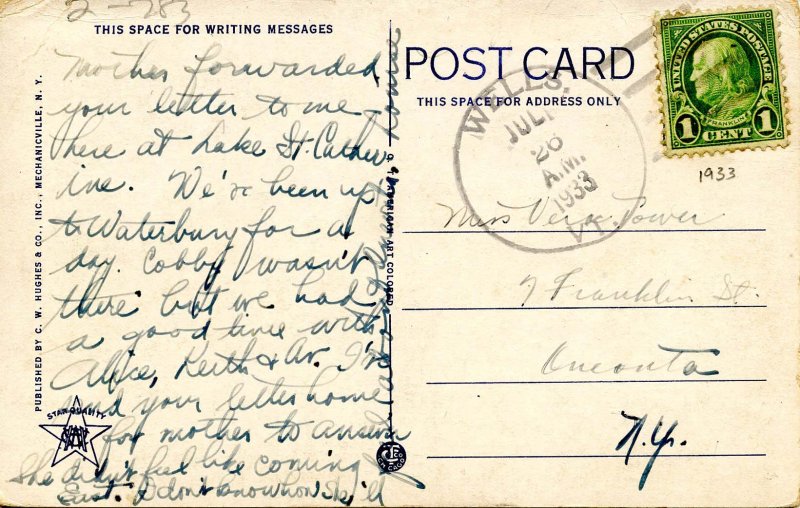 2-783
THIS SPACE FOR WRITING MESSAGES
Mother forwarded
your letter to me
here at Lake St. Cather
ine. We've been up
to Waterbury for a
day. Cobby wasn't
there but we had
a good time with
Alice, Keith & Av. I'll
send your letter home
for mother to answer
She didn't feel like coming
East. I don't know how she'll
PUBLISHED BY C. W. HUGHES & CO., INC., MECHANICVILLE, N. Y.
STAR QUALITY
AMERICAN ART COLORED
C.T. CO. CHICAGO
POST CARD
THIS SPACE FOR ADDRESS ONLY
WELLS,
JUL
26
A.M.
1933
VT.
UNITED STATES POSTAGE
FRANKLIN
1 CENT 1
1933
Miss Vera Power
7 Franklin St.
Oneonta
N.Y.